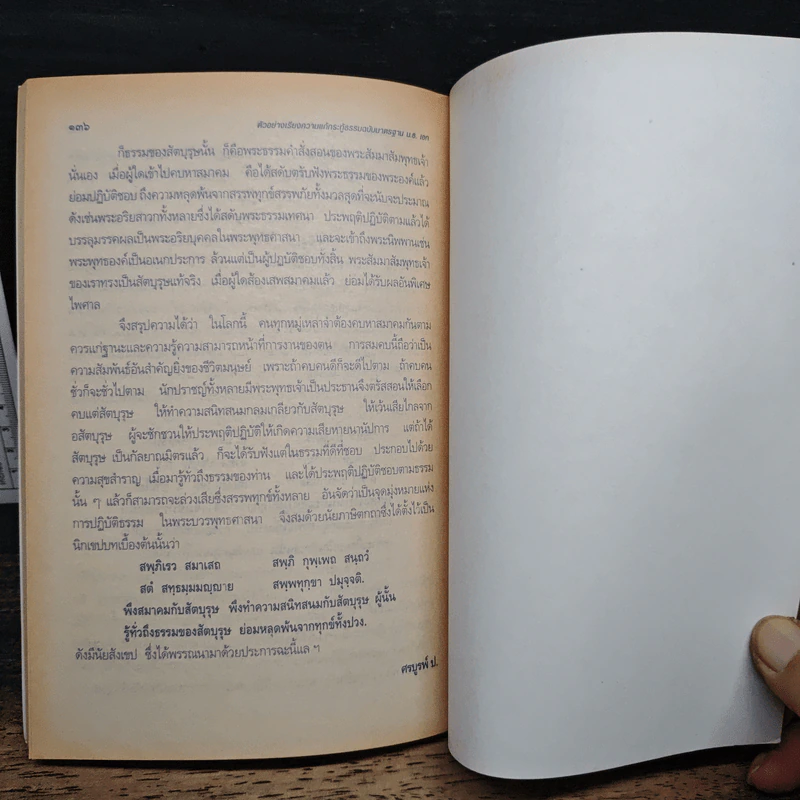 ๑๓๖
ตัวอย่างเรียงความแก้กระทู้ธรรมฉบับมาตรฐาน น.ธ. เอก
ก็ธรรมของสัตบุรุษนั้น ก็คือพระธรรมคำสั่งสอนของพระสัมมาสัมพุทธเจ้า
นั่นเอง เมื่อผู้ใดเข้าไปคบหาสมาคม คือได้สดับตรับฟังพระธรรมของพระองค์แล้ว
ย่อมปฏิบัติชอบ ถึงความหลุดพ้นจากสรรพทุกข์สรรพภัยทั้งมวลสุดที่จะนับจะประมาณ
ดังเช่นพระอริยสาวกทั้งหลายซึ่งได้สดับพระธรรมเทศนา ประพฤติปฏิบัติตามแล้วได้
บรรลุมรรคผลเป็นพระอริยบุคคลในพระพุทธศาสนา และจะเข้าถึงพระนิพพานเช่น
พระพุทธองค์เป็นอเนกประการ ล้วนแต่เป็นผู้ปฏิบัติชอบทั้งสิ้น พระสัมมาสัมพุทธเจ้า
ของเราทรงเป็นสัตบุรุษแท้จริง เมื่อผู้ใดส้องเสพสมาคมแล้ว ย่อมได้รับผลอันพิเศษ
ไพศาล
จึงสรุปความได้ว่า ในโลกนี้ คนทุกหมู่เหล่าจำต้องคบหาสมาคมกันตาม
ควรแก่ฐานะและความรู้ความสามารถหน้าที่การงานของตน การสมคบนี้ถือว่าเป็น
ความสัมพันธ์อันสำคัญยิ่งของชีวิตมนุษย์ เพราะถ้าคบคนดีก็จะดีไปตาม ถ้าคบคน
ชั่วก็จะชั่วไปตาม นักปราชญ์ทั้งหลายมีพระพุทธเจ้าเป็นประธานจึงตรัสสอนให้เลือก
คบแต่สัตบุรุษ ให้ทำความสนิทสนมกลมเกลียวกับสัตบุรุษ ให้เว้นเสียไกลจาก
อสัตบุรุษ ผู้จะชักชวนให้ประพฤติปฏิบัติให้เกิดความเสียหายนานัปการ แต่ถ้าได้
สัตบุรุษ เป็นกัลยาณมิตรแล้ว ก็จะได้รับฟังแต่ในธรรมที่ดีที่ชอบ ประกอบไปด้วย
ความสุขสำราญ เมื่อมารู้ทั่วถึงธรรมของท่าน และได้ประพฤติปฏิบัติชอบตามธรรม
นั้น ๆ แล้วก็สามารถจะล่วงเสียซึ่งสรรพทุกข์ทั้งหลาย อันจัดว่าเป็นจุดมุ่งหมายแห่ง
การปฏิบัติธรรม ในพระบวรพุทธศาสนา จึงสมด้วยนัยภาษิตกถาซึ่งได้ตั้งไว้เป็น
นิกเขปบทเบื้องต้นนั้นว่า
สพฺภิเรว สมาเสถ สพฺภิ กุพฺเพถ สนฺถวํ
สตํ สทฺธมฺมมญฺญาย สพฺพทุกฺขา ปมุจฺจติ.
พึงสมาคมกับสัตบุรุษ พึงทำความสนิทสนมกับสัตบุรุษ ผู้นั้น
รู้ทั่วถึงธรรมของสัตบุรุษ ย่อมหลุดพ้นจากทุกข์ทั้งปวง.
ดังมีนัยสังเขป ซึ่งได้พรรณนามาด้วยประการฉะนี้แล ฯ
ศรบูรพ์ ป.